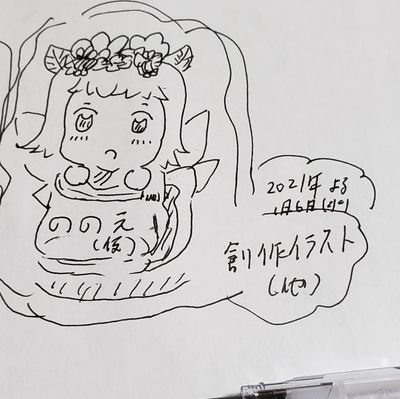 ののえ
(仮)
2021年 よる
1月6日(水)
創作イラスト
(他)